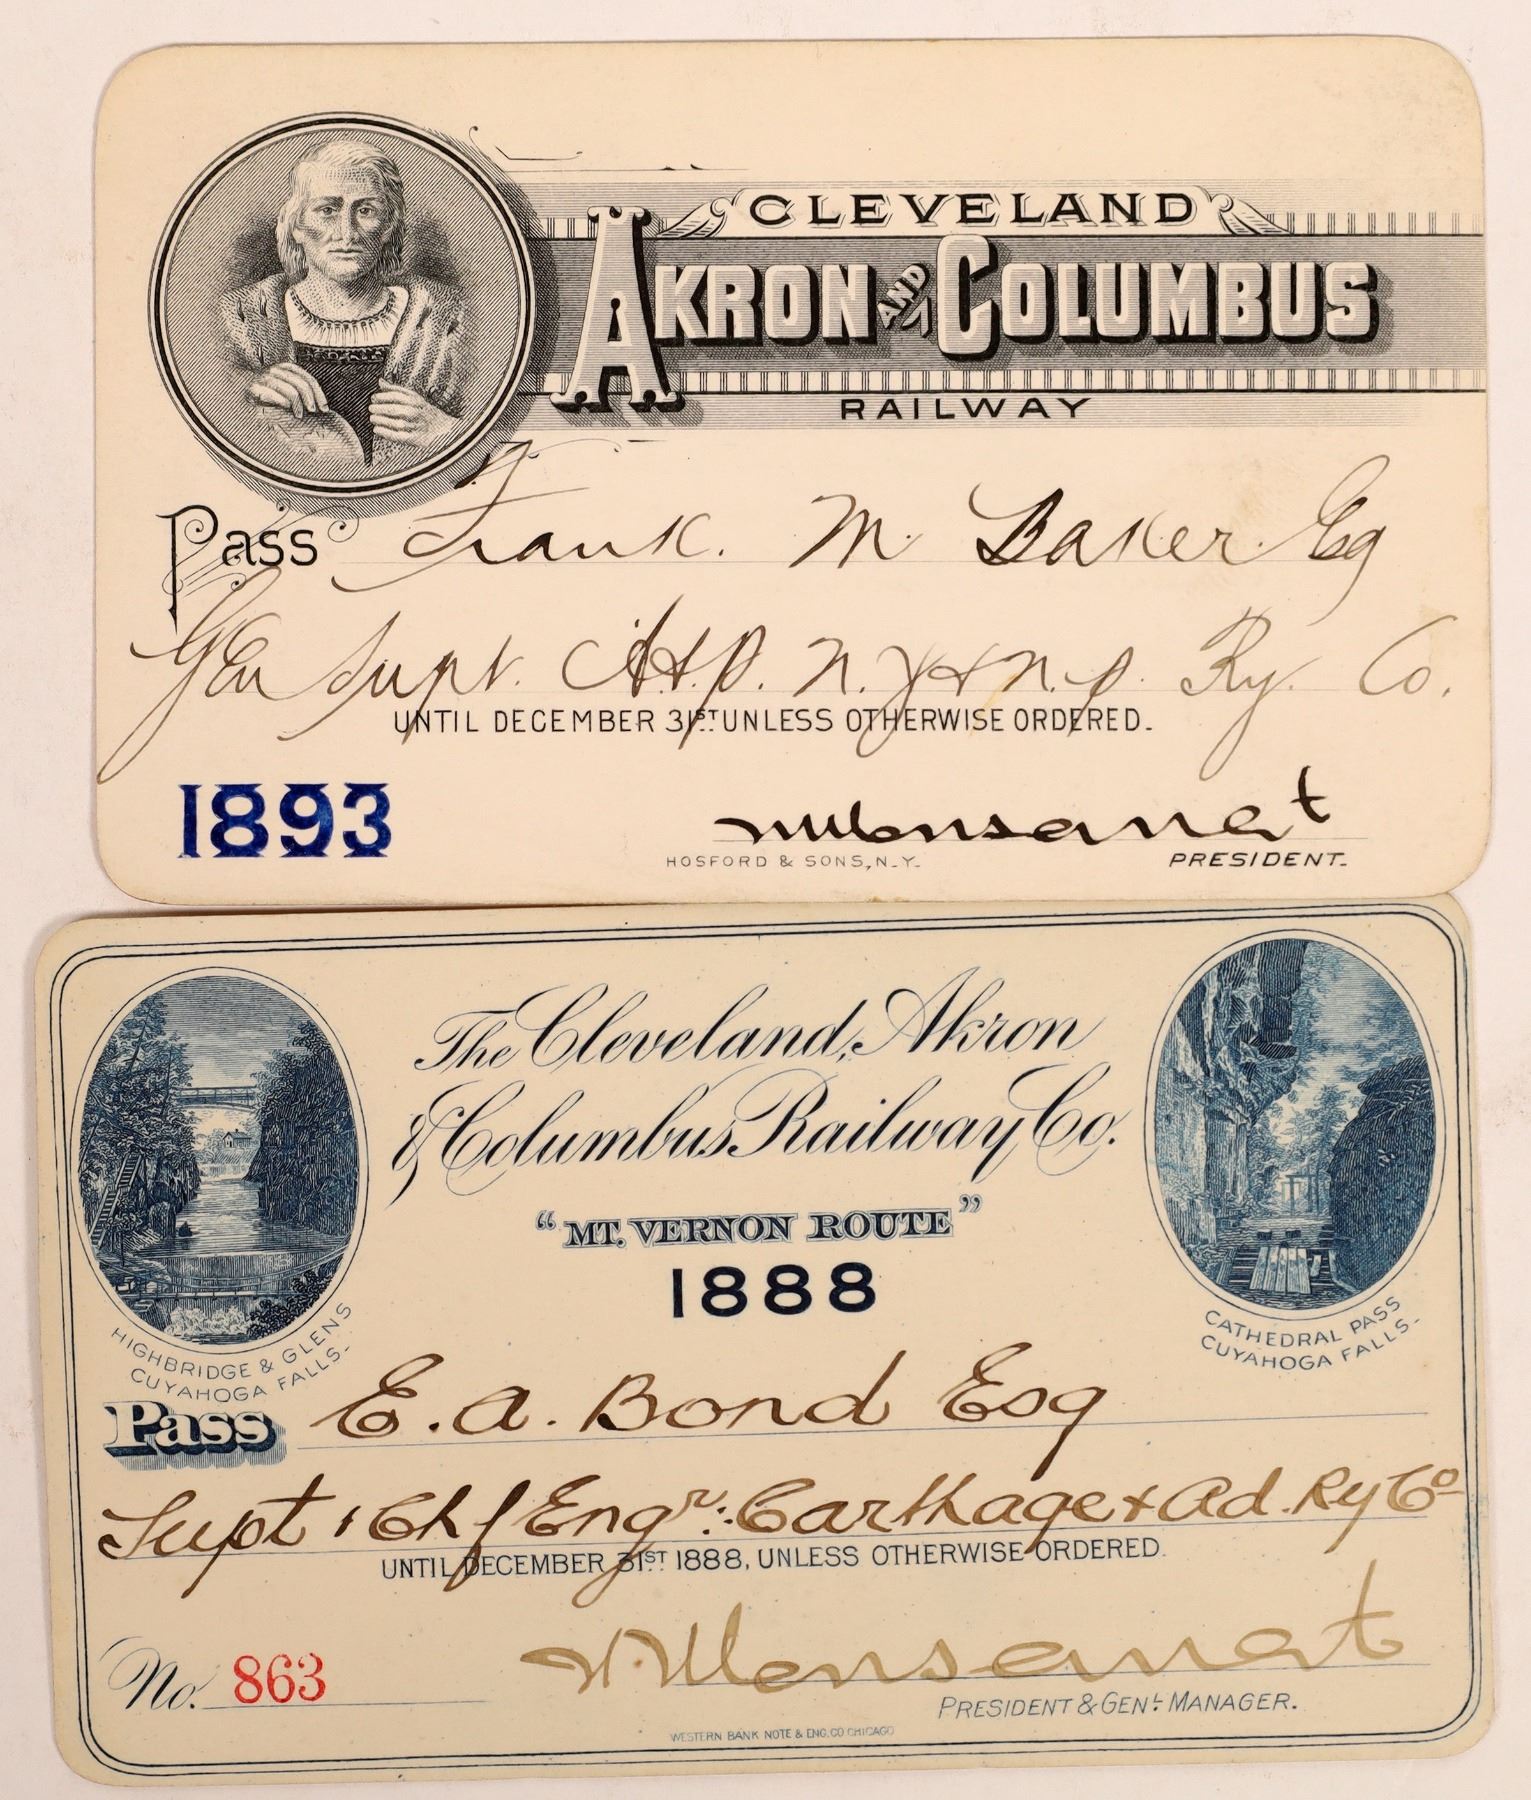 CLEVELAND
AKRON AND COLUMBUS
RAILWAY
Pass Frank. M. Baker Esq
Gen Supt. A. & P. N. Y & N. P. Ry. Co.
UNTIL DECEMBER 31ST UNLESS OTHERWISE ORDERED.
1893
HOSFORD & SONS, N.Y.
PRESIDENT.
The Cleveland, Akron
& Columbus Railway Co.
"MT. VERNON ROUTE"
1888
HIGHBRIDGE & GLENS
CUYAHOGA FALLS.
CATHEDRAL PASS
CUYAHOGA FALLS.
Pass E. A. Bond Esq
Supt & Chf Engr: Carthage & Ad. Ry Co
UNTIL DECEMBER 31ST 1888, UNLESS OTHERWISE ORDERED.
No. 863
N. Monsarrat
PRESIDENT & GENL MANAGER.
WESTERN BANK NOTE & ENG. CO CHICAGO